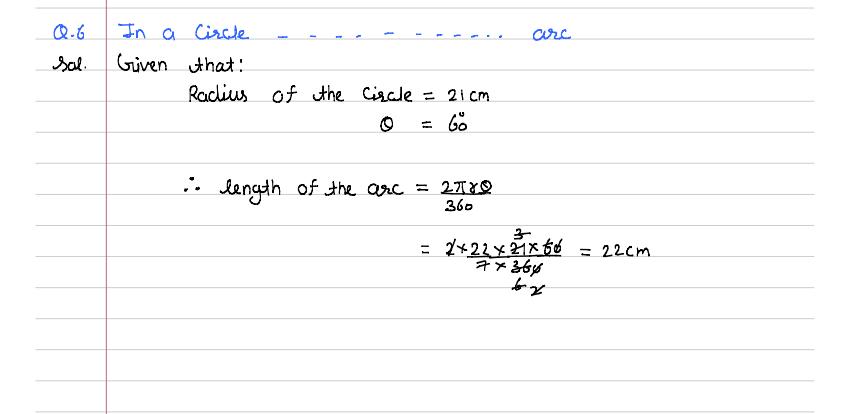 Q.6 In a Circle - - - - - - - - - - . . . arc
Sol. Given that:
Radius of the Circle = 21 cm
θ = 60°
∴ length of the arc = 2πrθ
360
3
= 2 × 22 × 21 × 60 = 22 cm
7 × 360
6 2